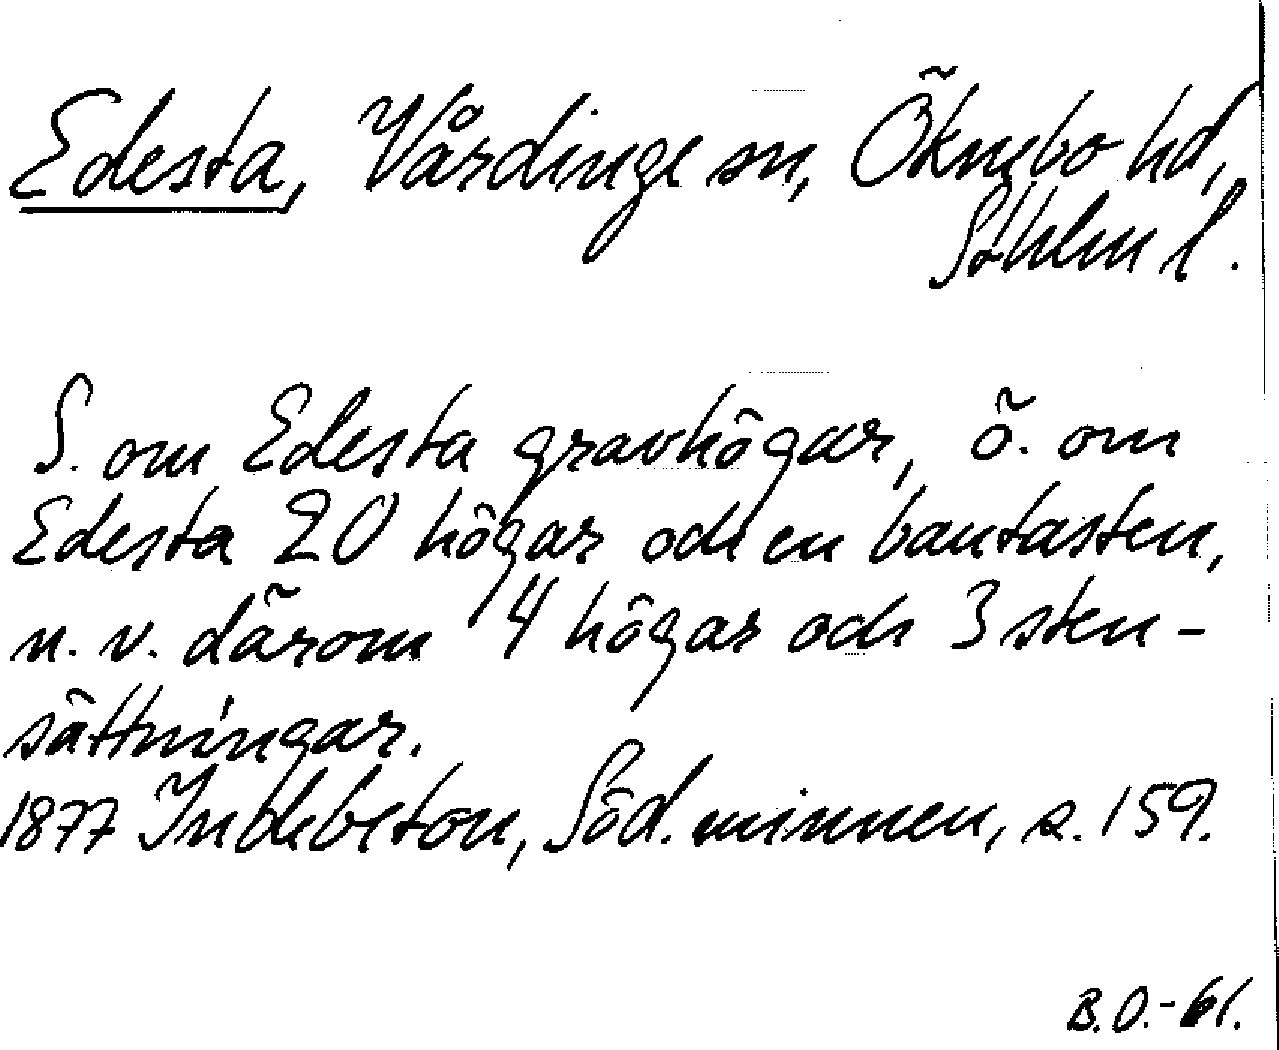 Edesta, Vårdinge sn, Öknebo hd,
Sthlm l.
S. om Edesta gravhögar, ö. om
Edesta 20 högar och en bautasten,
n. v. därom 4 högar och 3 sten-
sättningar.
1877 Indebetou, Söd. minnen, s. 159.
B.O.-61.